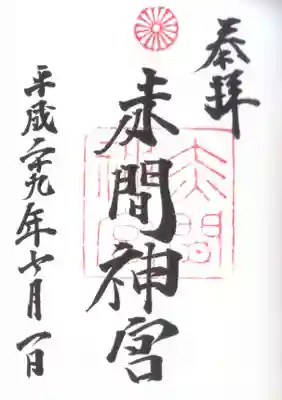 奉拝
赤間神宮
平成二十九年七月一日